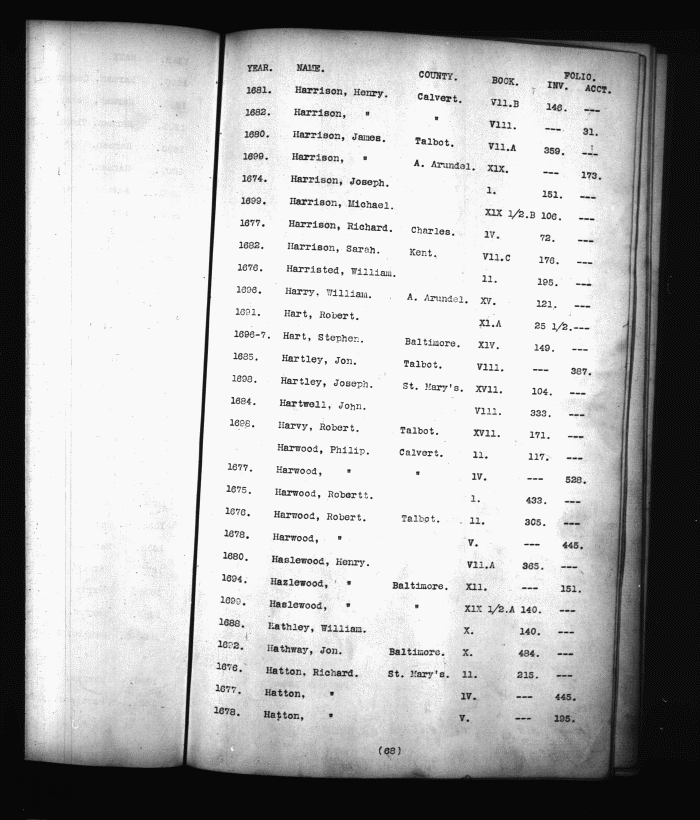 YEAR. NAME. COUNTY. BOOK. FOLIO.
INV. ACCT.
1681. Harrison, Henry. Calvert. V11.B 146. ---
1682. Harrison, " " V111. --- 31.
1680. Harrison, James. Talbot. V11.A 359. ---
1699. Harrison, " A. Arundel. X1X. --- 173.
1674. Harrison, Joseph. 1. 151. ---
1699. Harrison, Michael. X1X 1/2.B 106. ---
1677. Harrison, Richard. Charles. 1V. 72. ---
1682. Harrison, Sarah. Kent. V11.C 176. ---
1676. Harristed, William. 11. 195. ---
1696. Harry, William. A. Arundel. XV. 121. ---
1691. Hart, Robert. X1.A 25 1/2.---
1696-7. Hart, Stephen. Baltimore. X1V. 149. ---
1685. Hartley, Jon. Talbot. V111. --- 387.
1698. Hartley, Joseph. St. Mary's. XV11. 104. ---
1684. Hartwell, John. V111. 333. ---
1698. Harvy, Robert. Talbot. XV11. 171. ---
Harwood, Philip. Calvert. 11. 117. ---
1677. Harwood, " " 1V. --- 528.
1675. Harwood, Robertt. 1. 433. ---
1676. Harwood, Robert. Talbot. 11. 305. ---
1678. Harwood, " V. --- 445.
1680. Haslewood, Henry. V11.A 365. ---
1694. Hazlewood, " Baltimore. X11. --- 151.
1699. Haslewood, " " X1X 1/2.A 140. ---
1688. Hathley, William. X. 140. ---
1692. Hathway, Jon. Baltimore. X. 484. ---
1676. Hatton, Richard. St. Mary's. 11. 215. ---
1677. Hatton, " 1V. --- 445.
1678. Hatton, " V. --- 195.
(68)